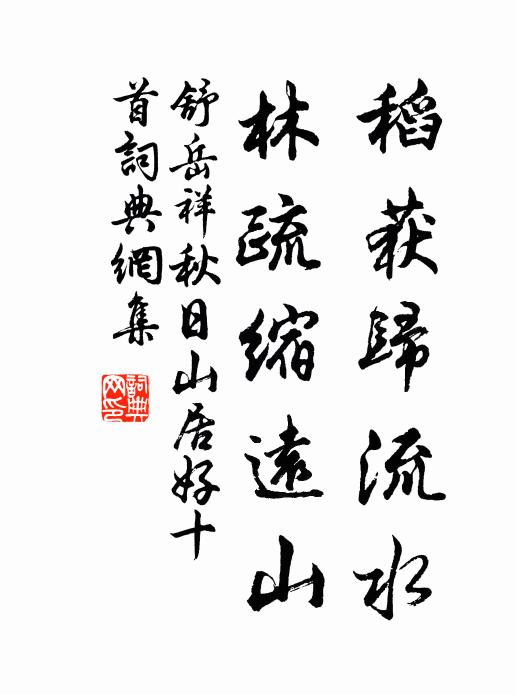 稻获歸流水
林疏縮遠山
舒岳祥秋日山居好十
首詞典網集
詞典
网印